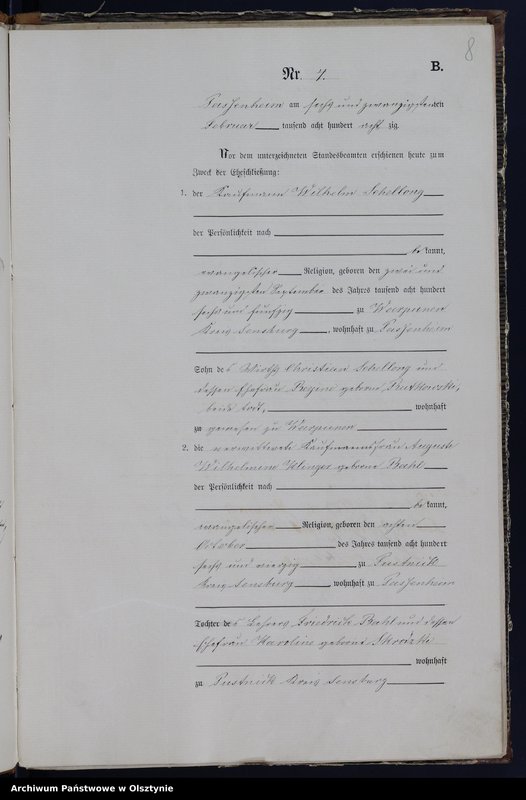 8
B.
Nr. 7.
Passenheim am sechs und zwanzigsten ten
Februar tausend acht hundert acht zig.
Vor dem unterzeichneten Standesbeamten erschienen heute zum
Zweck der Eheschließung:
1. der Kaufmann Wilhelm Schellong
der Persönlichkeit nach
be kannt,
evangelischer Religion, geboren den zwei und
zwanzigsten September des Jahres tausend acht hundert
sechs und fünfzig zu Warpunen
Kreis Sensburg, wohnhaft zu Passenheim
Sohn des Wirths Christian Schellong und
dessen Ehefrau Regine geborne
beide todt, wohnhaft
zu gewesen zu Warpunen
2. die verwittwete Kaufmannsfrau Auguste
Wilhelmine Klinger geborne Bahl
der Persönlichkeit nach
be kannt,
evangelischer Religion, geboren den achten
October des Jahres tausend acht hundert
sechs und vierzig zu Pustnick
Kreis Sensburg, wohnhaft zu Passenheim
Tochter des Lehrers Friedrich Bahl und dessen
Ehefrau Karoline geborne
wohnhaft
zu Pustnick Kreis Sensburg
Archiwum Państwowe w Olsztynie